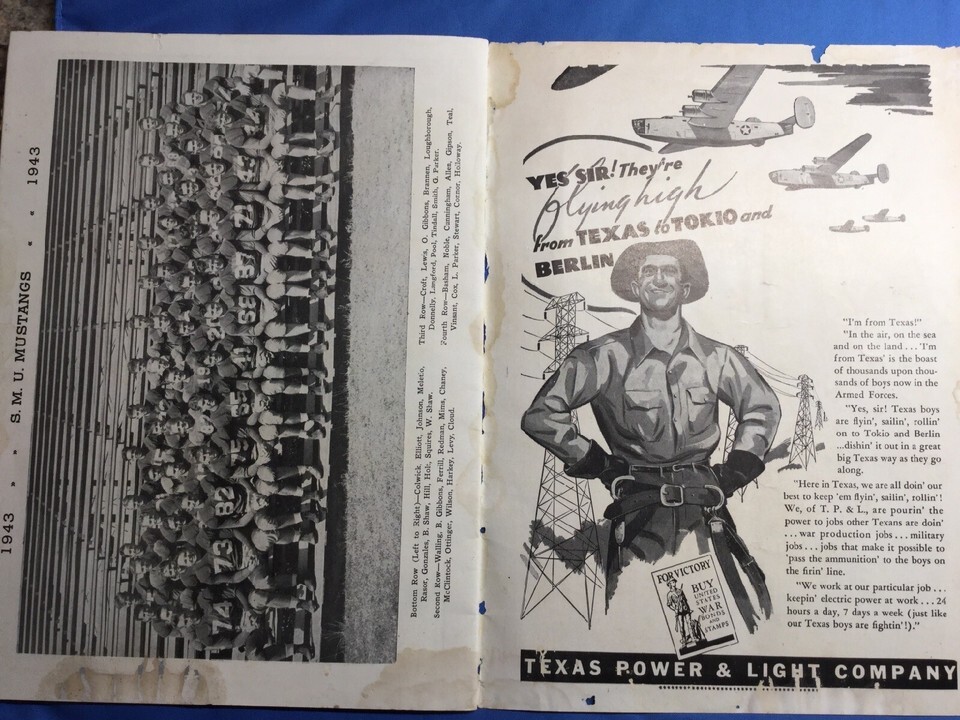 1943 » S. M. U. MUSTANGS « « 1943
Bottom Row (Left to Right)—Colwick, Elliott, Johnson, Meletio,
Rasor, Gonzales, B. Shaw, Hill, Holt, Squires, W. Shaw.
Second Row—Walling, B. Gibbons, Ferrill, Redman, Mims, Chaney,
McClintock, Ottinger, Wilson, Harkey, Levy, Cloud.
Third Row—Croft, Lewis, O. Gibbons, Brannen, Loughborough,
Donnelly, Langford, Pool, Tindall, Smith, G. Parker.
Fourth Row—Basham, Noble, Cunningham, Allen, Gipson, Teal,
Vinsant, Cox, L. Parker, Stewart, Cornor, Holloway.
YES SIR! They're
flying high
from TEXAS to TOKIO and
BERLIN
"I'm from Texas!"
"In the air, on the sea
and on the land . . . 'I'm
from Texas' is the boast
of thousands upon thou-
sands of boys now in the
Armed Forces.
"Yes, sir! Texas boys
are flyin', sailin', rollin'
on to Tokio and Berlin
...dishin' it out in a great
big Texas way as they go
along.
"Here in Texas, we are all doin' our
best to keep 'em flyin', sailin', rollin'!
We, of T. P. & L., are pourin' the
power to jobs other Texans are doin'
. . . war production jobs . . . military
jobs . . . jobs that make it possible to
'pass the ammunition' to the boys on
the firin' line.
"We work at our particular job . . .
keepin' electric power at work . . . 24
hours a day, 7 days a week (just like
our Texas boys are fightin'!)."
FOR VICTORY
BUY
UNITED
STATES
WAR
BONDS
AND
STAMPS
TEXAS POWER & LIGHT COMPANY